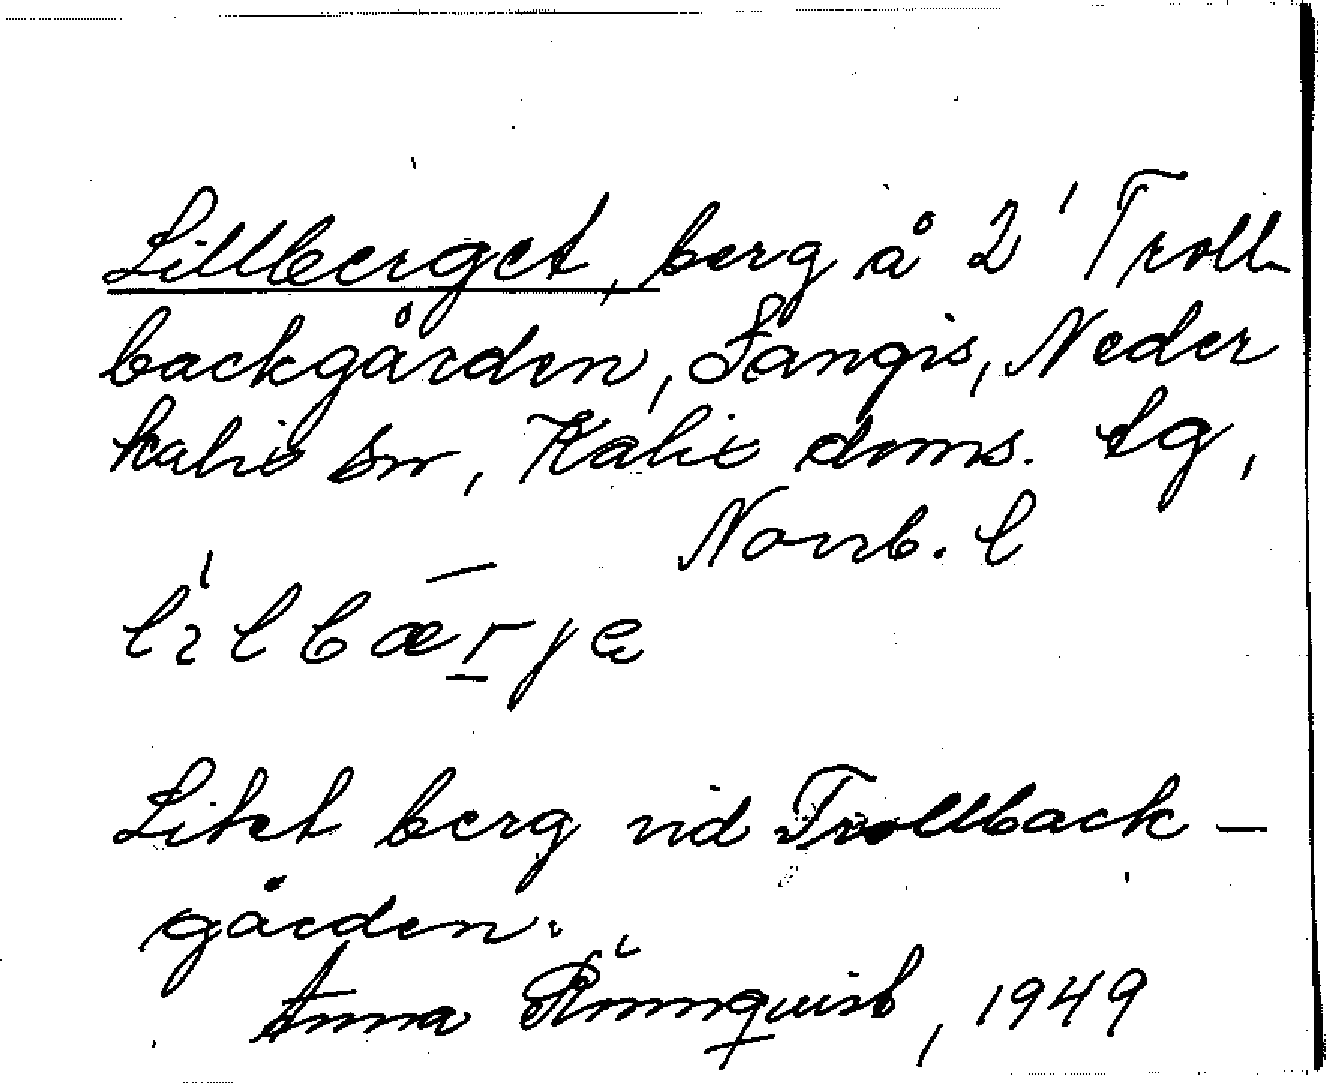 Lillberget, berg å 2' Troll-
backgården, Sangis, Neder
kalix sn, Kalix doms. lg,
Norrb. l
lìlbæ̅r̲jə
Litet berg vid Trollback-
gården.
Anna Rönnquist, 1949